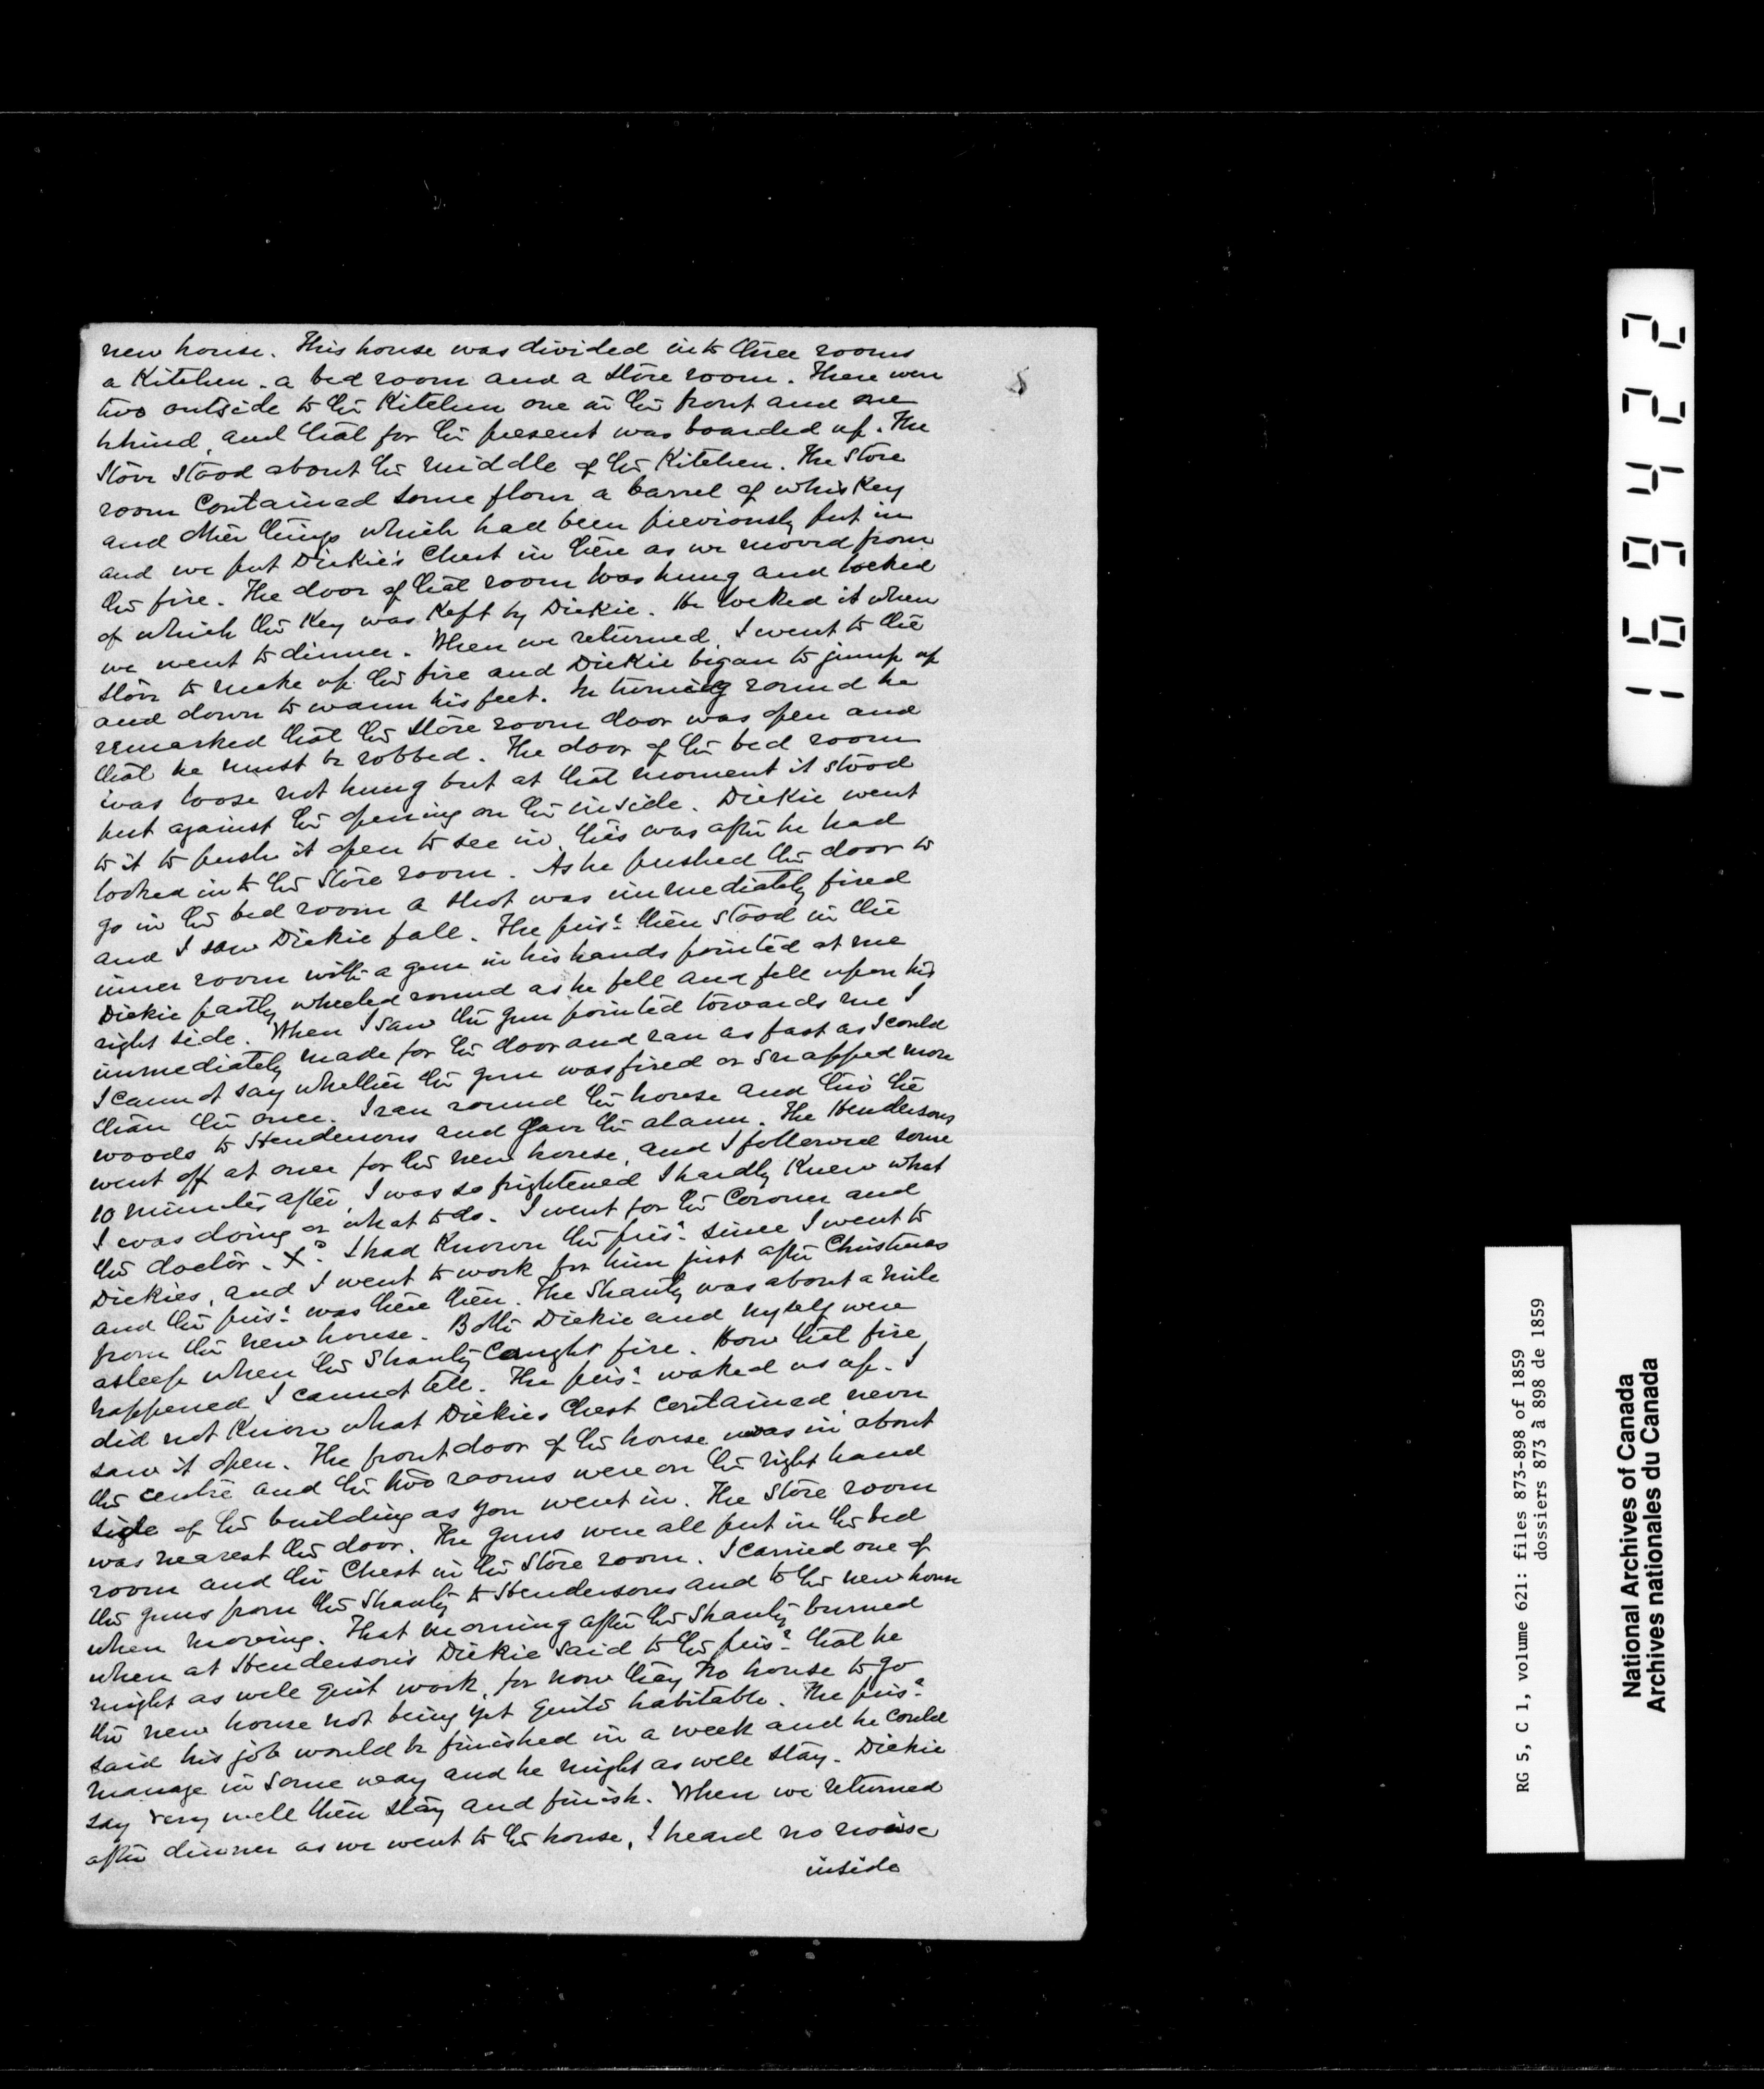 8
new house. This house was divided into three rooms
a Kitchen. a bed room and a store room. There were
two outside to the Kitchen one in the front and one
behind, and that for the present was boarded up. The
Stove stood about the middle of the Kitchen. The Store
room Contained some flour a barrel of whiskey
and other things which had been previously put in
and we put Dickie's Chest in there as we moved from
the fire. The door of that room was hung and locked
of which the Key was Kept by Dickie. He locked it when
we went to dinner. When we returned, I went to the
stove to make up the fire and Dickie began to jump up
and down to warm his feet. In turning round he
remarked that the store room door was open and
that he must be robbed. The door of the bed room
was loose not hung but at that moment it stood
put against the opening on the inside. Dickie went
to it to push it open to see in, this was after he had
looked in to the Store room. As he pushed the door to
go in the bed room a shot was immediately fired
and I saw Dickie fall. The pris.r then stood in the
inner room with a gun in his hands pointed at me
Dickie partly wheeled round as he fell and fell upon his
right side. When I saw the gun pointed towards me I
immediately made for the door and ran as fast as I could
I cannot say whether the gun was fired or snapped more
than the once. I ran round the house and thro' the
woods to Hendersons and gave the alarm. The Hendersons
went off at once for the new house, and I followed some
10 minutes after, I was so frightened I hardly Knew what
I was doing or what to do. I went for the Coroner and
the doctor. X.d I had Known the pris.r since I went to
Dickies, and I went to work for him just after Christmas
and the pris.r was there then. The Shanty was about a mile
from the new house. Both Dickie and myself were
asleep when the Shanty Caught fire. How that fire
happened I cannot tell. The pris.r waked us up. I
did not Know what Dickies Chest contained never
saw it open. The front door of the house was in about
the centre and the two rooms were on the right hand
side of the building as you went in. The Store room
was nearest the door. The guns were all put in the bed
room and the Chest in the Store room. I carried one of
the guns from the Shanty to Hendersons and to the new house
when moving. That morning after the Shanty burned
when at Henderson's Dickie said to the pris.r that he
might as well quit work, for now they no house to go
the new house not being yet quite habitable. The pris.r
said his job would be finished in a week and he could
manage in some way and he might as well stay. Dickie
say very well then stay and finish. When we returned
after dinner as we went to the house, I heard no noise
inside
169422
RG 5, C 1, volume 621: files 873-898 of 1859
dossiers 873 à 898 de 1859
National Archives of Canada
Archives nationales du Canada